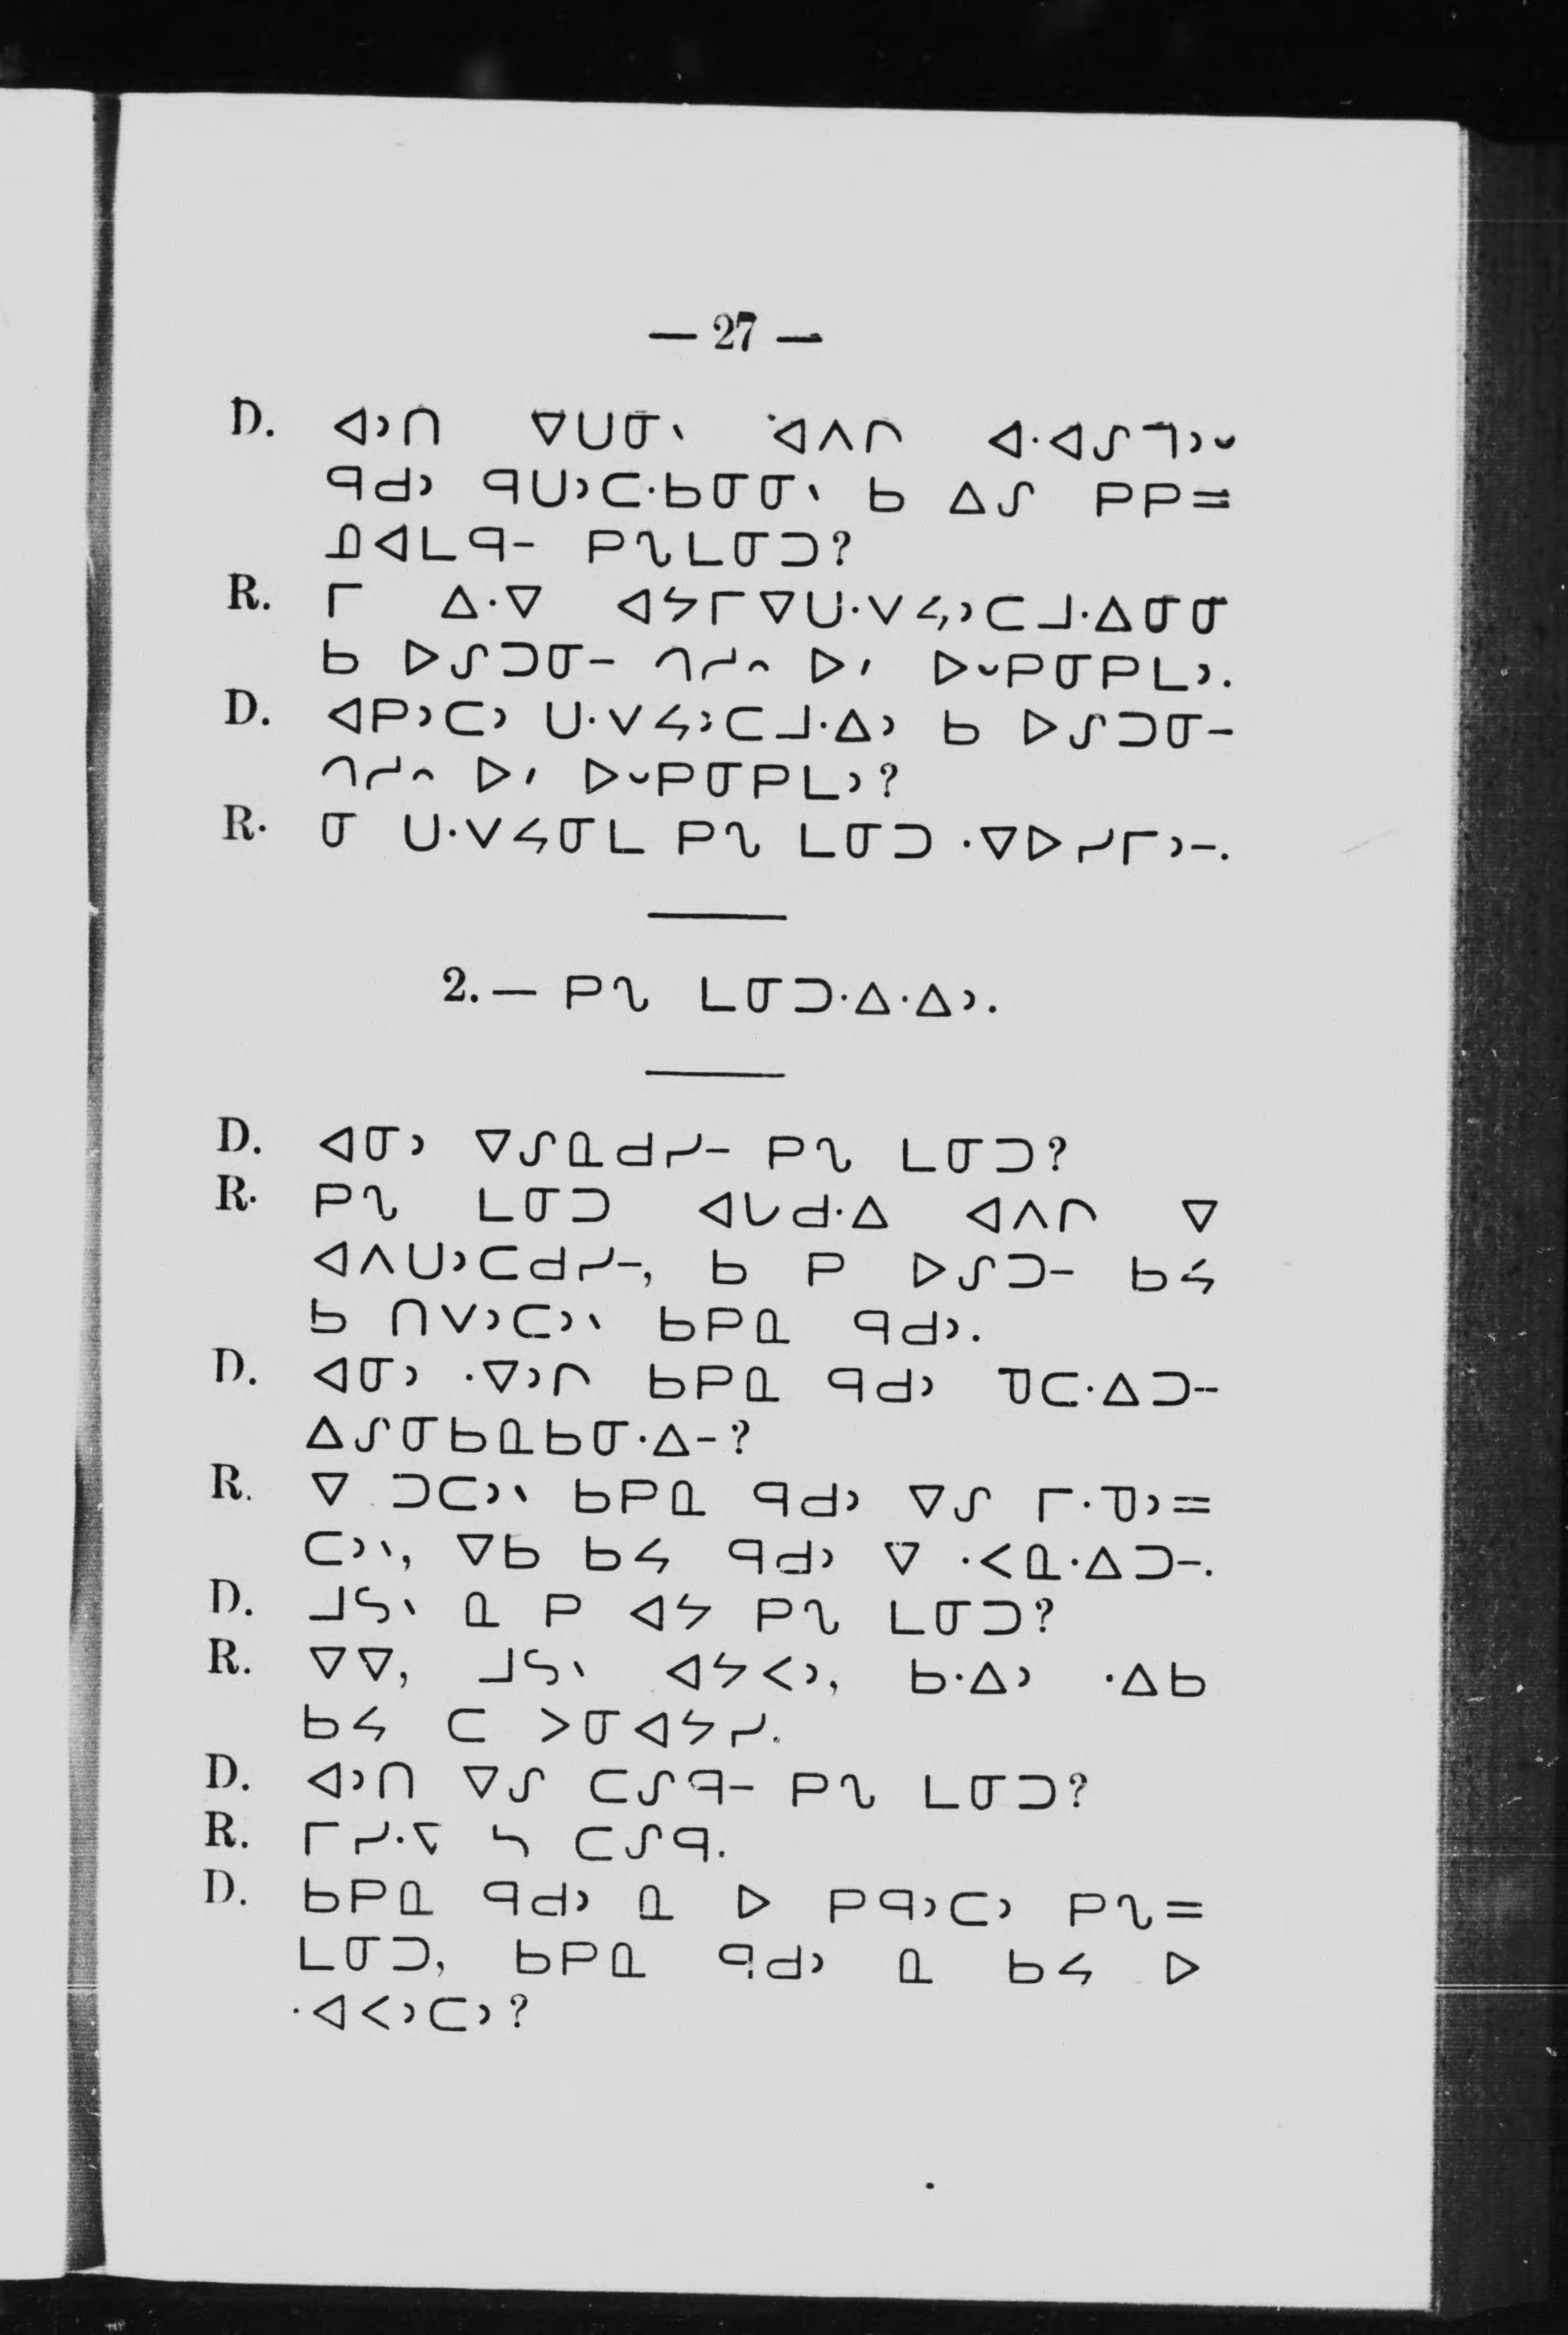 — 27 —
D. ᐊᐣᑎ ᐁᑌᓂᐠ ᐊᐱᒋ ᐊᐧᐊᔑᒣᐣᐨ
ᑫᑯᐣ ᑫᑌᐣᑕᐧᑲᓂᓂᐠ ᑲ ᐃᔑ ᑭᑭ=
ᓄᐊᒪᑫᐟ ᑭᓭᒪᓂᑐ?
R. ᒥ ᐃᐧᐁ ᐊᔭᒥᐁᑌᐧᐯᔦᐣᑕᒧᐧᐃᓂᓂ
ᑲ ᐅᔑᑐᓂᐟ ᒋᓱᐢ ᐅᐟ ᐅᐨᑭᓂᑭᒪᐣ.
D. ᐊᑭᐣᑕᐣ ᑌᐧᐯᔦᐣᑕᒧᐧᐃᐣ ᑲ ᐅᔑᑐᓂᐟ
ᒋᓱᐢ ᐅᐟ ᐅᐨᑭᓂᑭᒪᐣ?
R. ᓂ ᑌᐧᐯᔦᓂᒪ ᑭᓭ ᒪᓂᑐ ᐧᐁᐅᓯᒥᐣᐟ.
2.— ᑭᓭ ᒪᓂᑐᐧᐃᐧᐃᐣ.
D. ᐊᓂᐣ ᐁᔑᓇᑯᓯᐟ ᑭᓭ ᒪᓂᑐ?
R. ᑭᓭ ᒪᓂᑐ ᐊᒐᑯᐧᐃ ᐊᐱᒋ ᐁ
ᐊᐱᑌᐣᑕᑯᓯᐟ, ᑲ ᑭ ᐅᔑᑐᐟ ᑲᔦ
ᑲ ᑎᐯᐣᑕᐣᐠ ᑲᑭᓇ ᑫᑯᐣ.
D. ᐊᓂᐣ ᐧᐁᐣᒋ ᑲᑭᓇ ᑫᑯᐣ ᑫᑕᐧᐃᑐᐟ
ᐃᔑᓂᑲᓇᑲᓂᐧᐃᐟ?
R. ᐁ ᑐᑕᐣᐠ ᑲᑭᓇ ᑫᑯᐣ ᐁᔑ ᒥᐧᓀᐣ=
ᑕᐣᐠ, ᐁᑲ ᑲᔦ ᑫᑯᐣ ᐁ ᐧᐸᓇᐧᐃᑐᐟ.
D. ᒧᔕᐠ ᓇ ᑭ ᐊᔭ ᑭᓭ ᒪᓂᑐ?
R. ᐁᐁ, ᒧᔕᐠ ᐊᔭᐸᐣ, ᑲᐧᐃᐣ ᐧᐃᑲ
ᑲᔦ ᑕ ᐳᓂᐊᔭᓯ.
D. ᐊᐣᑎ ᐁᔑ ᑕᔑᑫᐟ ᑭᓭ ᒪᓂᑐ?
R. ᒥᓯᐧᐁ ᓴ ᑕᔑᑫ.
D. ᑲᑭᓇ ᑫᑯᐣ ᓇ ᐅ ᑭᑫᐣᑕᐣ ᑭᓭ=
ᒪᓂᑐ, ᑲᑭᓇ ᑫᑯᐣ ᓇ ᑲᔦ ᐅ
ᐧᐊᐸᐣᑕᐣ?